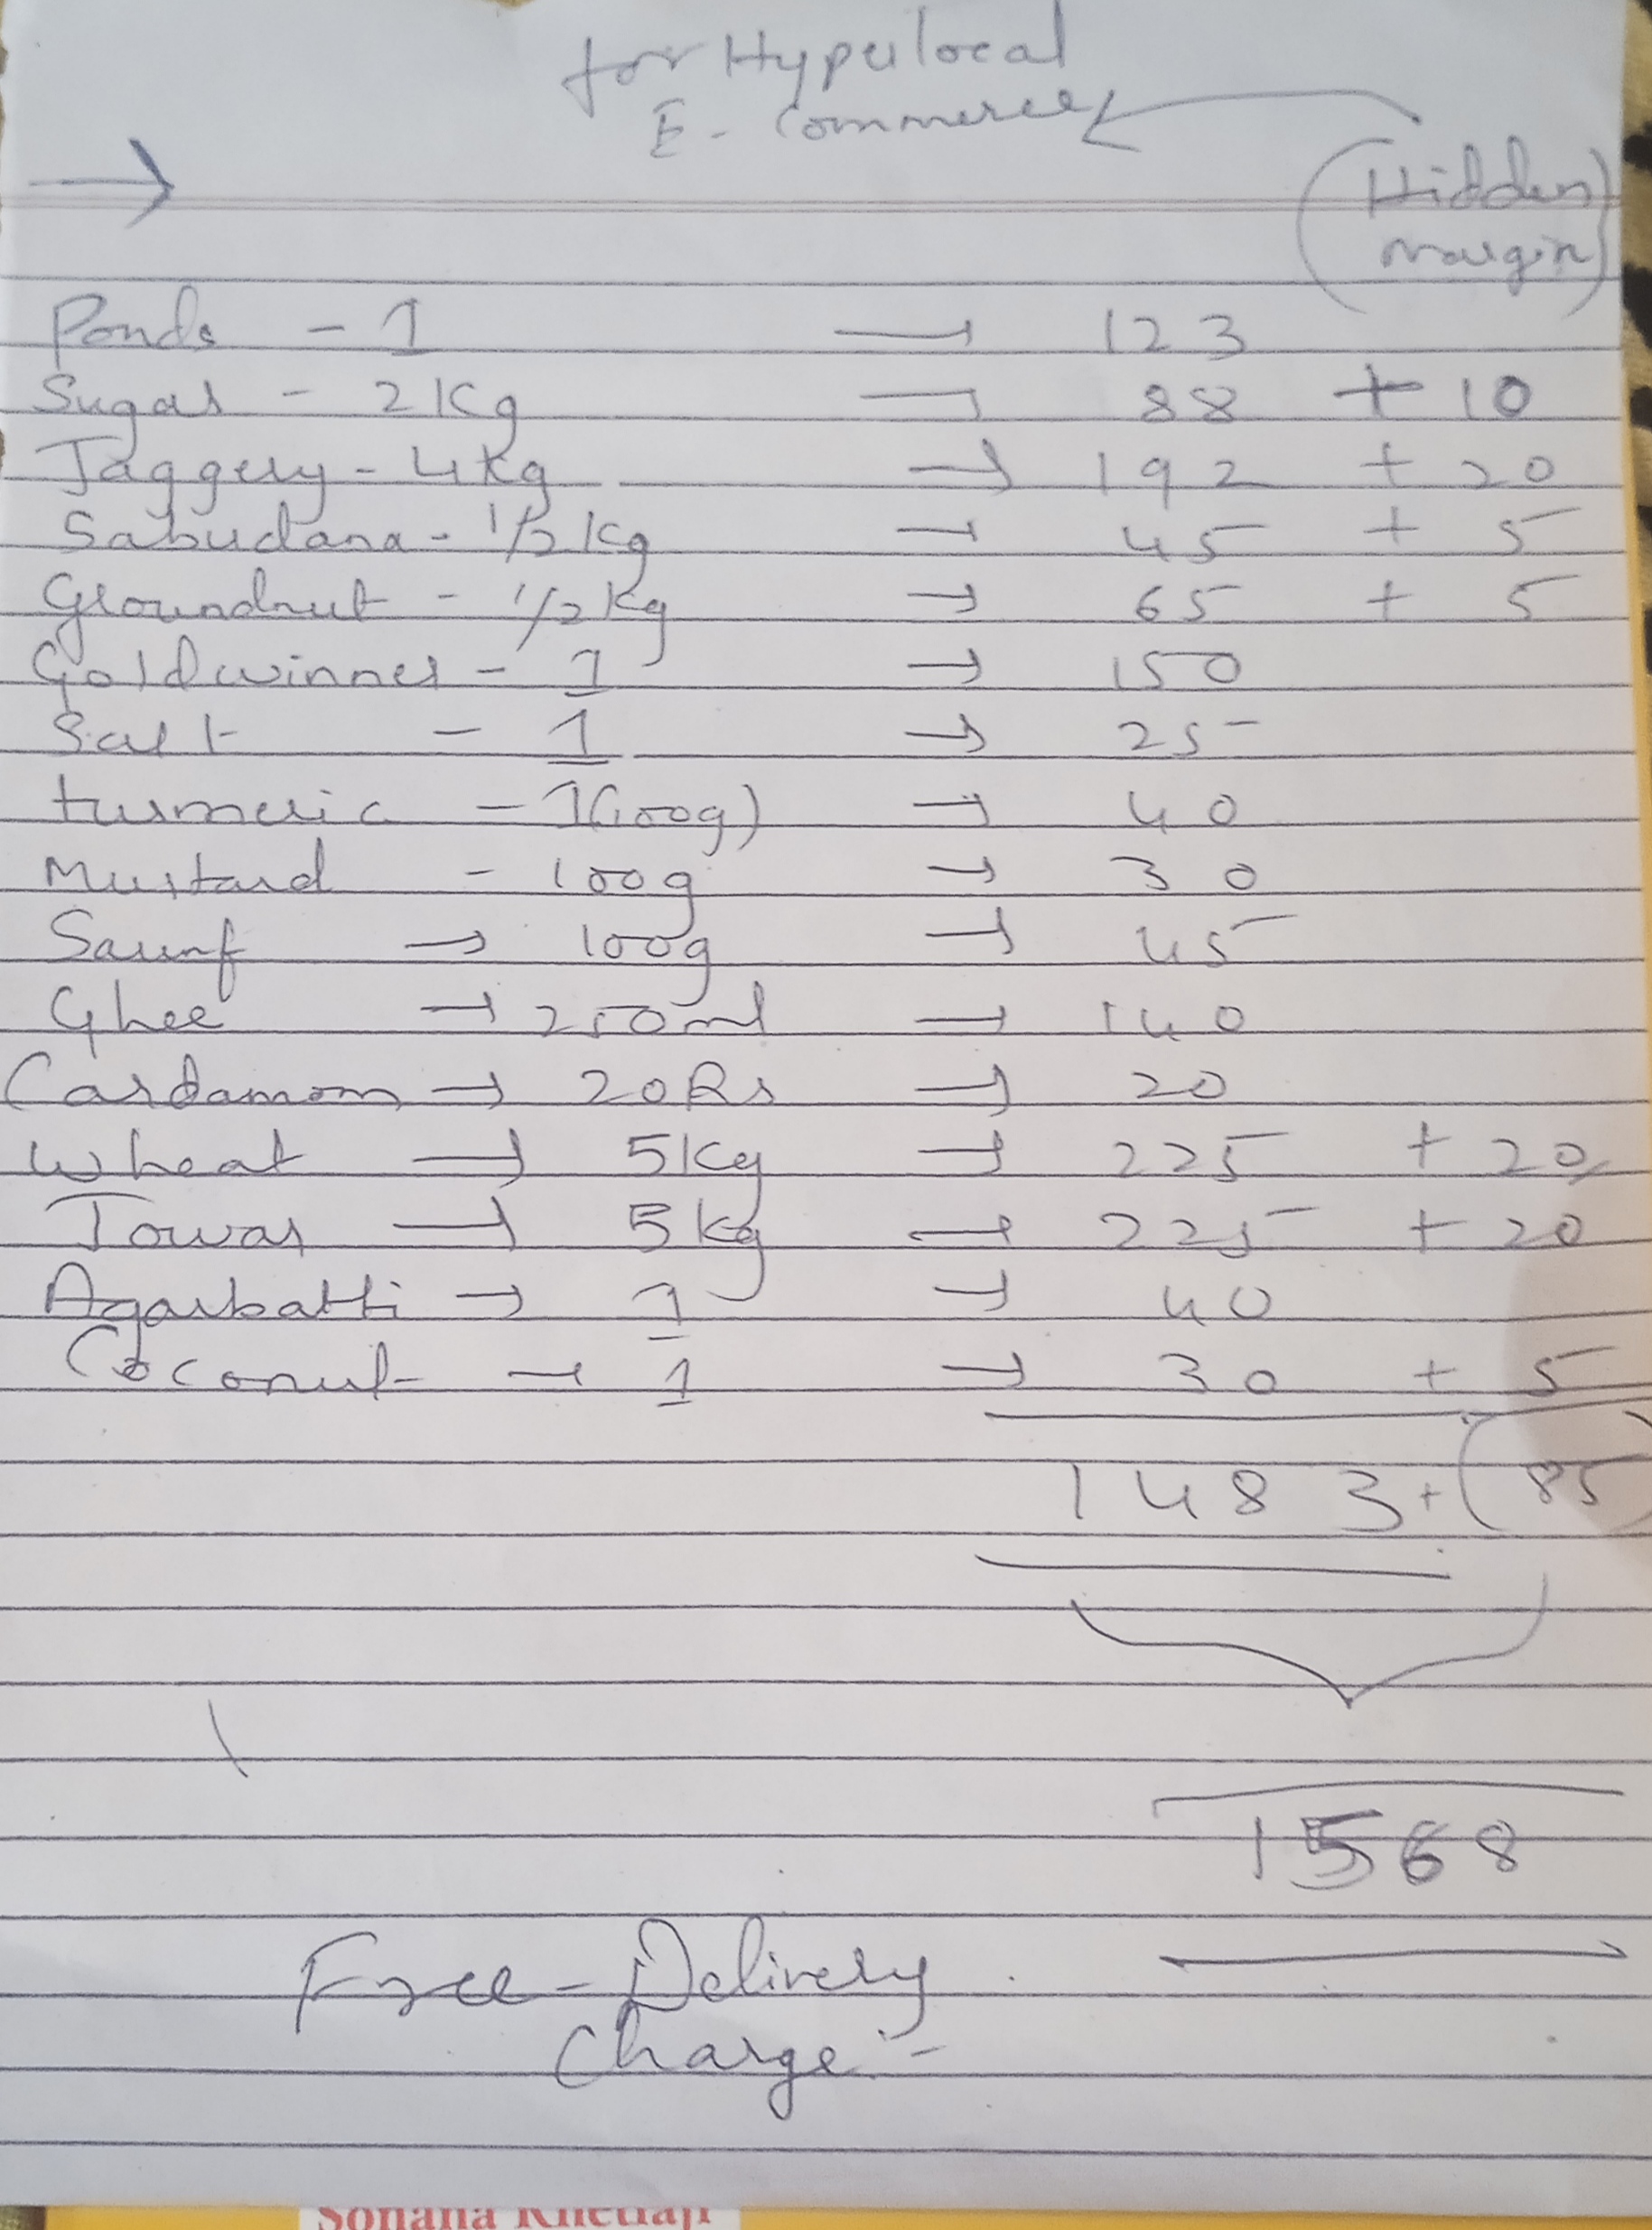 for Hyperlocal
E- Commerce
(Hidden
margin)
→
Ponds - 1 → 123
Sugar - 2Kg → 88 + 10
Jaggery - 4kg → 192 + 20
Sabudana - 1/2 kg → 45 + 5
Groundnut - 1/2 kg → 65 + 5
Goldwinner - 1 → 150
Salt - 1 → 25
turmeric - 1(100g) → 40
Mustard - 100g → 30
Saunf → 100g → 45
Ghee → 250ml → 140
Cardamom → 20Rs → 20
Wheat → 5Kg → 225 + 20
Jowar → 5kg → 225 + 20
Agarbatti → 1 → 40
Coconut → 1 → 30 + 5
1483 + (85)
1568
Free - Delivery
Charge -